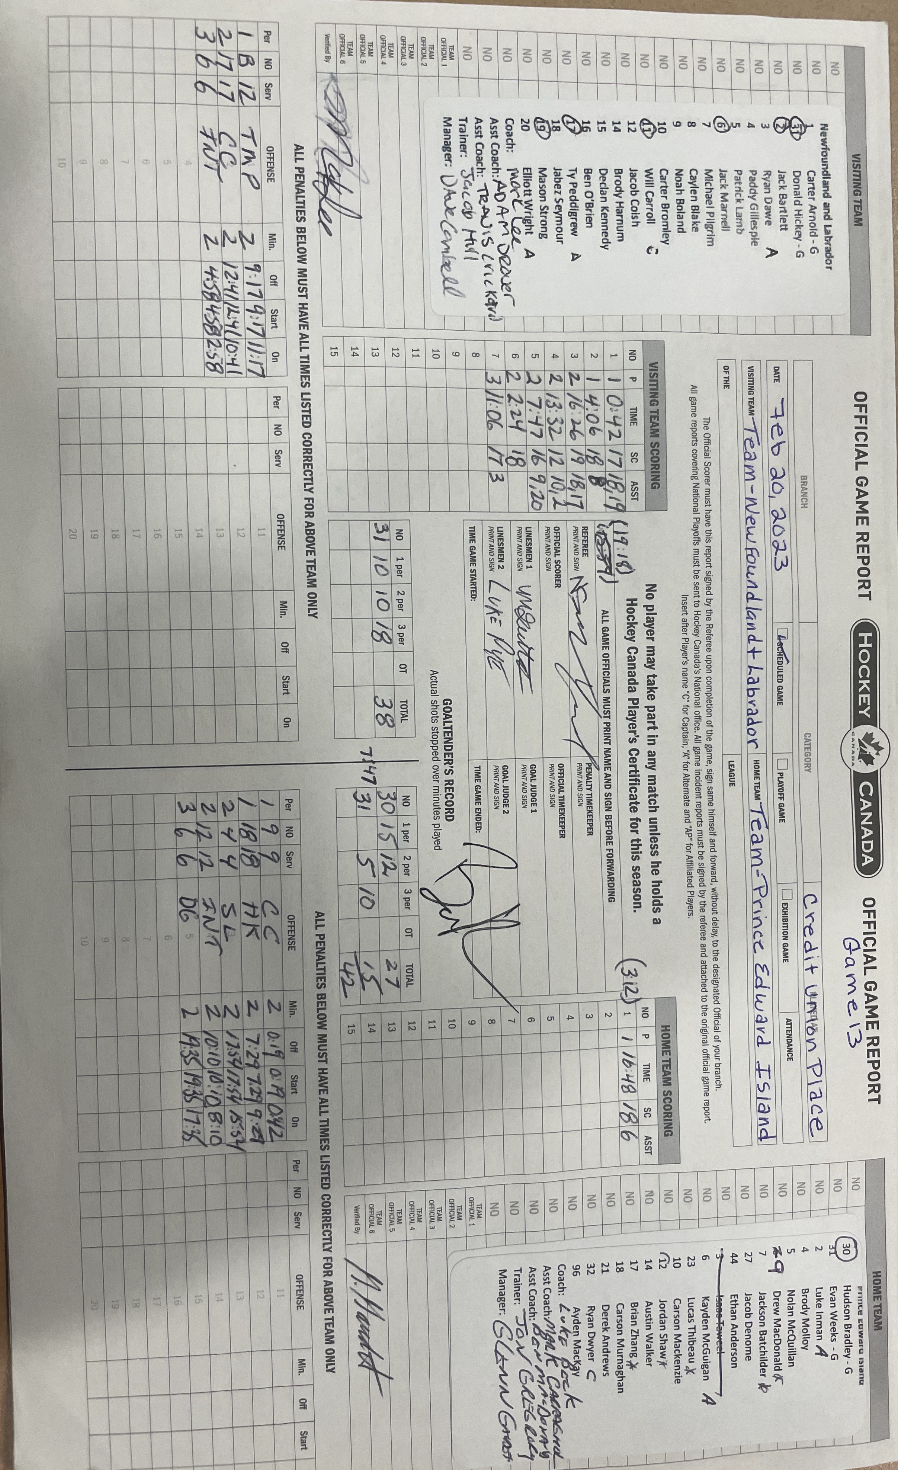 OFFICIAL GAME REPORT
HOCKEY CANADA
OFFICIAL GAME REPORT
Game 13
BRANCH
CATEGORY
Credit Union Place
DATE Feb 20, 2023
SCHEDULED GAME
PLAYOFF GAME
EXHIBITION GAME
ATTENDANCE
VISITING TEAM Team-Newfoundland + Labrador
HOME TEAM Team-Prince Edward Island
OF THE
LEAGUE
The Official Scorer must have this report signed by the Referee upon completion of the game, sign same himself and forward, without delay, to the designated Official of your branch.
All game reports covering National Playoffs must be sent to Hockey Canada's National office. All game incident reports must be signed by the referee and attached to the original official game report.
Insert after Player's name "C" for Captain, "A" for Alternate and "AP" for Affiliated Players.
VISITING TEAM
Newfoundland and Labrador
1 Carter Arnold - G
31 Donald Hickey - G
2 Jack Bartlett
3 Ryan Dawe A
4 Paddy Gillespie
5 Patrick Lamb
6 Jack Marnell
7 Michael Pilgrim
8 Caylen Blake
9 Noah Boland
10 Carter Bromley
11 Will Carroll C
12 Jacob Coish
14 Brody Harnum
15 Declan Kennedy
16 Ben O'Brien
17 Ty Peddigrew A
18 Jabez Seymour
19 Mason Strong
20 Elliott Wright A
Coach: Marc Lee
Asst Coach: ADAM Deaver
Asst Coach: TRAVIS Lrickard
Trainer: Jacob Hill
Manager: DAVE Cambell
TEAM OFFICIAL 1
TEAM OFFICIAL 2
TEAM OFFICIAL 3
TEAM OFFICIAL 4
TEAM OFFICIAL 5
TEAM OFFICIAL 6
Verified By
VISITING TEAM SCORING
NO P TIME SC ASST
1 1 0:42 17 18,19
2 1 4:06 18 8
3 2 16:26 19 18,17
4 2 13:32 12 10,2
5 2 7:47 16 9,20
6 2 2:24 18
7 3 11:06 17 3
8
9
10
11
12
13
14
15
No player may take part in any match unless he holds a
Hockey Canada Player's Certificate for this season.
(19:18)
(3:12)
ALL GAME OFFICIALS MUST PRINT NAME AND SIGN BEFORE FORWARDING
REFEREE PRINT AND SIGN
PENALTY TIMEKEEPER PRINT AND SIGN
OFFICIAL SCORER PRINT AND SIGN
OFFICIAL TIMEKEEPER PRINT AND SIGN
LINESMEN 1 PRINT AND SIGN
GOAL JUDGE 1 PRINT AND SIGN
LINESMEN 2 PRINT AND SIGN Luke Pye
GOAL JUDGE 2 PRINT AND SIGN
TIME GAME STARTED:
TIME GAME ENDED:
GOALTENDER'S RECORD
Actual shots stopped over minutes played
NO 1 per 2 per 3 per OT TOTAL
31 10 10 18 38
NO 1 per 2 per 3 per OT TOTAL
30 15 12 27
7:47 31 5 10 15
42
HOME TEAM SCORING
NO P TIME SC ASST
1 1 16:48 18 6
2
3
4
5
6
7
8
9
10
11
12
13
14
15
HOME TEAM
Prince Edward Island
30 Hudson Bradley - G
31 Evan Weeks - G
2 Luke Inman A
4 Brody Molloy
5 Nolan McQuillan
29 Drew MacDonald
7 Jackson Batchilder
27 Jacob Denome
44 Ethan Anderson
3 Isaac Towell
6 Kayden McGuigan A
23 Lucas Thibeau
10 Carson Mackenzie
12 Jordan Shaw
14 Austin Walker
17 Brian Zhang
18 Carson Murnaghan
21 Derek Andrews
32 Ryan Dwyer C
96 Ayden MacKay
Coach: Luke Beck
Asst Coach: Mark Carmond
Asst Coach: Ben
Trainer: Jon GREGORY
Manager: GLANN Grant
TEAM OFFICIAL 1
TEAM OFFICIAL 2
TEAM OFFICIAL 3
TEAM OFFICIAL 4
TEAM OFFICIAL 5
TEAM OFFICIAL 6
Verified By
ALL PENALTIES BELOW MUST HAVE ALL TIMES LISTED CORRECTLY FOR ABOVE TEAM ONLY
Per NO Serv OFFENSE Min. Off Start On
1 B 12 TMP 2 9:17 9:17 11:17
2 17 17 CC 2 12:41 12:41 10:41
3 6 6 INT 2 4:58 4:58 2:58
Per NO Serv OFFENSE Min. Off Start On
ALL PENALTIES BELOW MUST HAVE ALL TIMES LISTED CORRECTLY FOR ABOVE TEAM ONLY
Per NO Serv OFFENSE Min. Off Start On
1 9 9 CC 2 0:19 0:19 0:42
1 18 18 HK 2 7:29 7:29 9:29
2 4 4 SL 2 17:54 17:54 15:54
2 12 12 INT 2 10:10 10:10 8:10
3 6 6 DG 2 19:35 19:35 17:35
Per NO Serv OFFENSE Min. Off Start